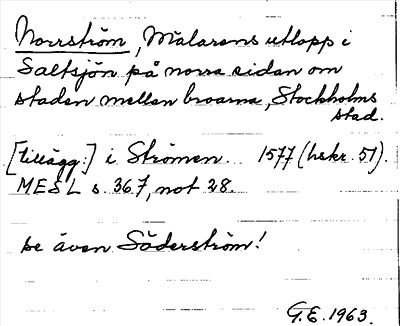 Norrström, Mälarens utlopp i
Saltsjön på norra sidan om
staden mellan broarna, Stockholms
stad.
[tillägg:] i Strömen. 1577 (hskr. 51).
MESL s. 367, not 28.
se även Söderström!
G.E. 1963.